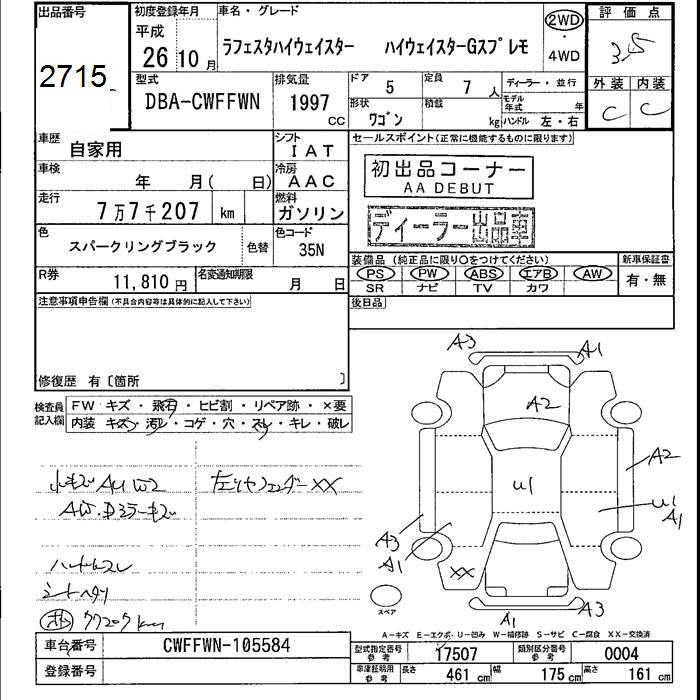 出品番号 初度登録年月 車名・グレード 2WD 評価点
2715 平成 26 10月 ラフェスタハイウェイスター ハイウェイスターGスプレモ ・ 4WD 3.5
型式 排気量 ドア 定員 ディーラー・並行 外装 内装
DBA-CWFFWN 1997 CC 5 7 人 モデル年式 年 C C
形状 ワゴン 積載 kg ハンドル 左・右
車歴 自家用 シフト IAT セールスポイント(正常に機能するものに限ります)
車検 年 月( 日) 冷房 AAC 初出品コーナー
AA DEBUT
走行 7万7千207 km 燃料 ガソリン ディーラー出品車
色 スパークリングブラック 色替 色コード 35N
装備品 (純正品に限り○をつけてください) 新車保証書
R券 11,810円 名変通知期限 月 日 PS PW ABS エアB AW 有・無
SR ナビ TV カワ
注意事項申告欄(不具合内容等は具体的に記入して下さい) 後日品
修復歴 有〔箇所 〕
検査員記入欄 FW キズ・飛石・ヒビ割・リペア跡・×要
内装 キズ・汚レ・コゲ・穴・スレ・キレ・破レ
A3 A1
A2
A2
U1
U1 A1
A3 A1
XX
A1 A3
小キズ AU W2 左リヤフェンダーXX
AW.Dミラーキズ
ハンドルスレ
シートヘタリ
77207km
スペア
A-キズ E-エクボ U-凹み W-補修跡 S-サビ C-腐食 XX-交換済
車台番号 CWFFWN-105584 型式指定番号 参考 17507 類別区分番号 参考 0004
登録番号 車庫証明用 参考 長さ 461 cm 幅 175 cm 高さ 161 cm